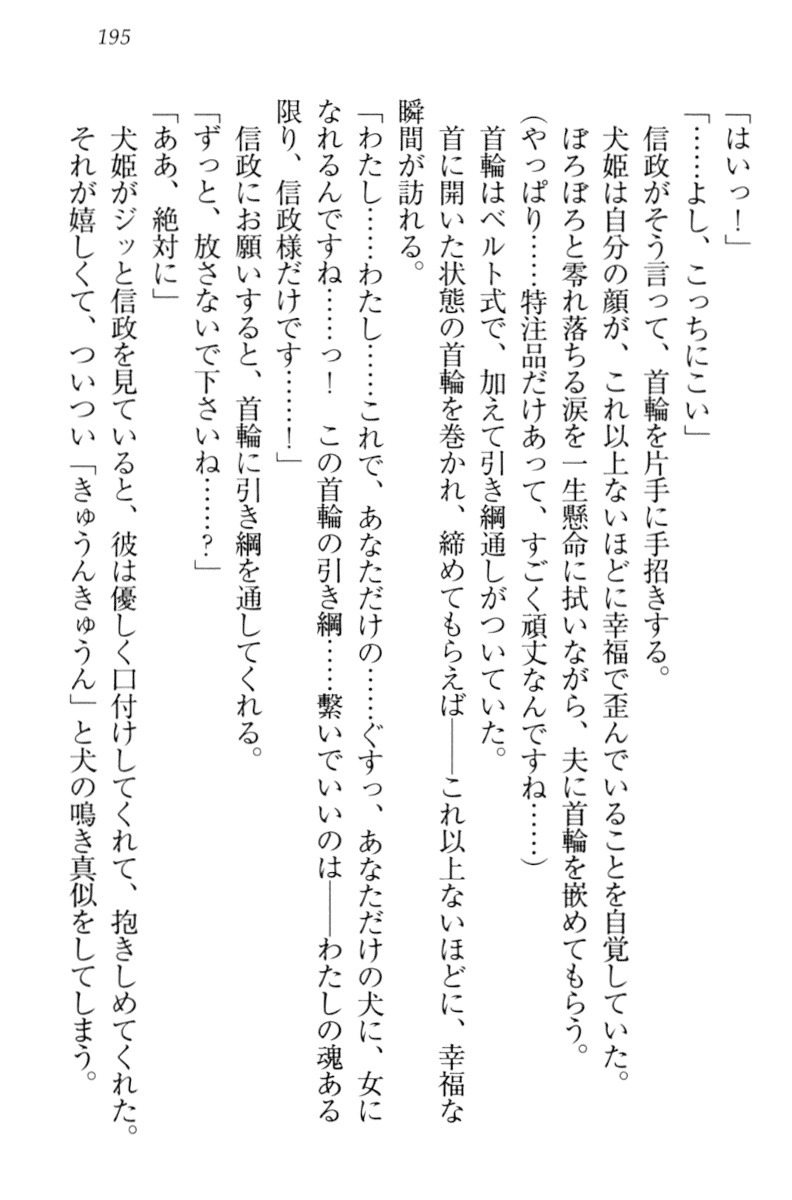 195
「はいっ！」
「……よし、こっちにこい」
信政がそう言って、首輪を片手に手招きする。
犬姫は自分の顔が、これ以上ないほどに幸福で歪んでいることを自覚していた。
ぽろぽろと零れ落ちる涙を一生懸命に拭いながら、夫に首輪を嵌めてもらう。
（やっぱり……特注品だけあって、すごく頑丈なんですね……）
首輪はベルト式で、加えて引き綱通しがついていた。
首に開いた状態の首輪を巻かれ、締めてもらえば――これ以上ないほどに、幸福な
瞬間が訪れる。
「わたし……わたし……これで、あなただけの……ぐすっ、あなただけの犬に、女に
なれるんですね……っ！　この首輪の引き綱……繋いでいいのは――わたしの魂ある
限り、信政様だけです……！」
信政にお願いすると、首輪に引き綱を通してくれる。
「ずっと、放さないで下さいね……？」
「ああ、絶対に」
犬姫がジッと信政を見ていると、彼は優しく口付けしてくれて、抱きしめてくれた。
それが嬉しくて、ついつい「きゅうんきゅうん」と犬の鳴き真似をしてしまう。